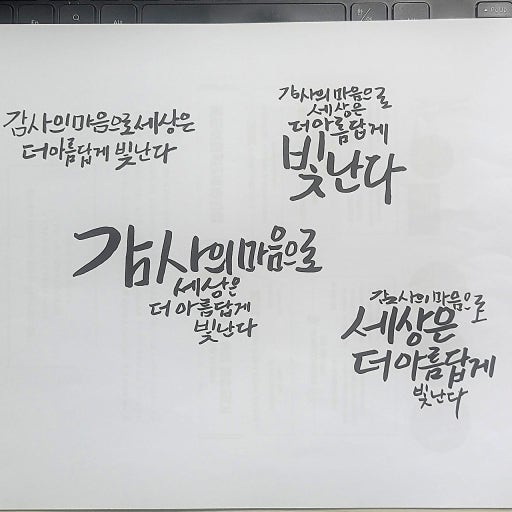 감사의 마음으로 세상은
더 아름답게 빛난다
감사의 마음으로
세상은
더 아름답게
빛난다
감사의 마음으로
세상은
더 아름답게
빛난다
감사의 마음으로
세상은
더 아름답게
빛난다